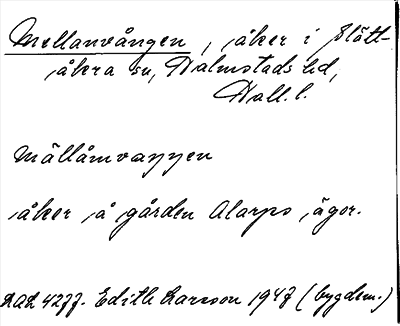 Mellanvången, åker i Slätt-
åkra sn, Halmstads hd,
Hall. l.
mällåmvaŋŋen
åker å gården Alarps ägor.
DAL 4277. Edith Larsson 1947 (bygdem.)